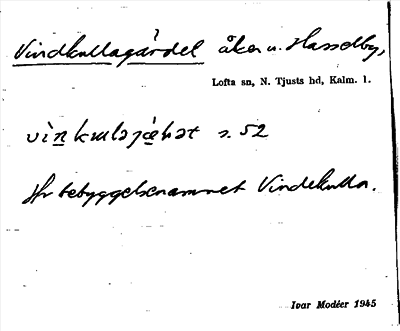 Vindkullagärdet åker u. Hasselby,
Lofta sn, N. Tjusts hd, Kalm. l.
s. 52
Av bebyggelsenamnet Vindekulla.
Ivar Modéer 1945